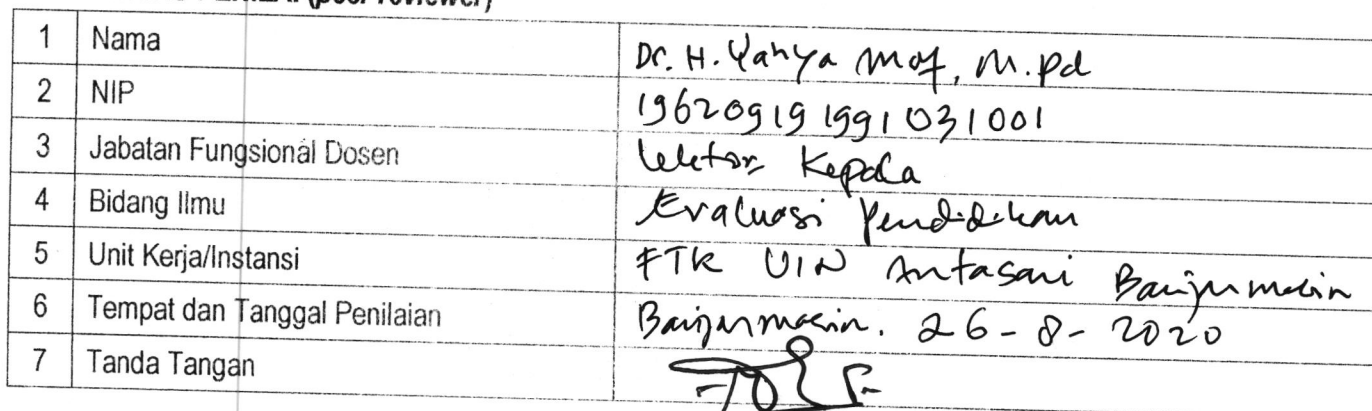 (peer reviewer)
1 Nama Dr. H. Yahya Mof, M.Pd
2 NIP 19620919 199103 1001
3 Jabatan Fungsional Dosen Lektor Kepala
4 Bidang Ilmu Evaluasi Pendidikan
5 Unit Kerja/Instansi FTK UIN Antasari Banjarmasin
6 Tempat dan Tanggal Penilaian Banjarmasin. 26-8-2020
7 Tanda Tangan